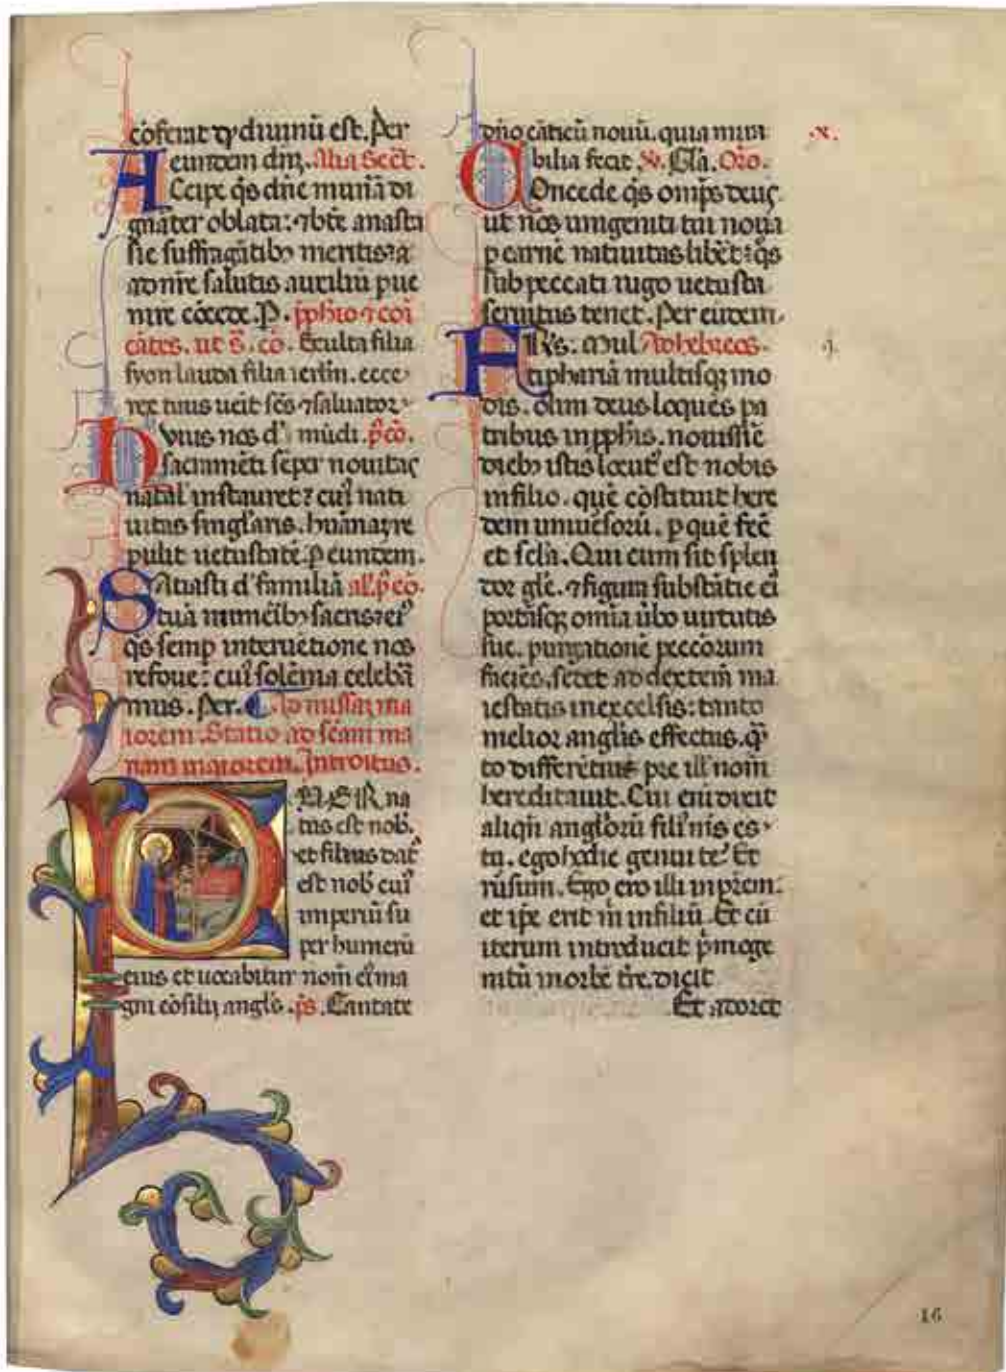 cōferat qḋ diuinū est. Per
eundem dn̄z. Alia Secr̄.
ACcipe q̄s dn̄e munā̄ di
gnāter oblata: ⁊ bt̄e anasta
sie suffragātib⁊ meritis: a
ad nr̄e salutis auxiliū pue
nire cōcede. P. p̄phtio ⁊ coī
cātes. ut s̄. cō. Exulta filia
syon lauda filia ierlm̄. ecce
rex tuus ueīt sc̄s ⁊ saluator
mūdi. p̄cō.
hVius nos d̄
sacramēti sēper nouitas
natal̄ instauret: cuī natī
uitas singl̄aris. humānā re
pulit uetustatē. p eundem.
SAtiasti d̄ familiā al. p̄cō.
tuā munēib⁊ sacris: eī
q̄s semp interuētione nos
refoue: cuī solēnia celebrā
mus. Per. Ad missaz ma
iorem. Statio ad scām ma
riam maiorem. Introitus.
PUER na
tus est nob̄.
et filius dat̄
est nob̄ cuī
imperiū su
per humerū
eius et uocabitur nom̄ eī ma
gni cōsilij angl̄s. p̄s. Cantate
dn̄o cāticū nouū. quia mira
bilia fecit. V. Gl̄a. Or̄o.
COncede q̄s omp̄s deus
ut nos unigeniti tui noua
p carnē natiuitas libēt: q̄s
sub peccati iugo uetusta
seruitus tenet. Per eūdem.
FRs̄. Mul Ad hebreos.
tiphariā multisq; mo
dis. olim deus loquēs pa
tribus in p̄phis. nouissīe
dieb⁊ istis locut̄ est nobis
in filio. quē cōstituit here
dem uniuēsorū. p quē fec̄
et sc̄la. Qui cum sit splen
dor gl̄e. ⁊ figura substātie eī
portāsq; omīa ūbo uirtutis
sue. purgationē peccōrum
faciēs. sedet ad dexterā̄ ma
iestatis in excelsis: tanto
melior angl̄is effectus. q̄ᷓ
to differētius pre ill̄ nom̄
hereditauit. Cui enī dixit
aliqn̄ anglōrū filī̄ mīs es
tu. ego hodie genui te? Et
rūsum. Ego ero illi in pr̄em:
et ip̄e erit m̄ in filiū. Et cū
iterum introducit p̄moge
nitū in orbē tr̄e. dicit
Et adorēt
16